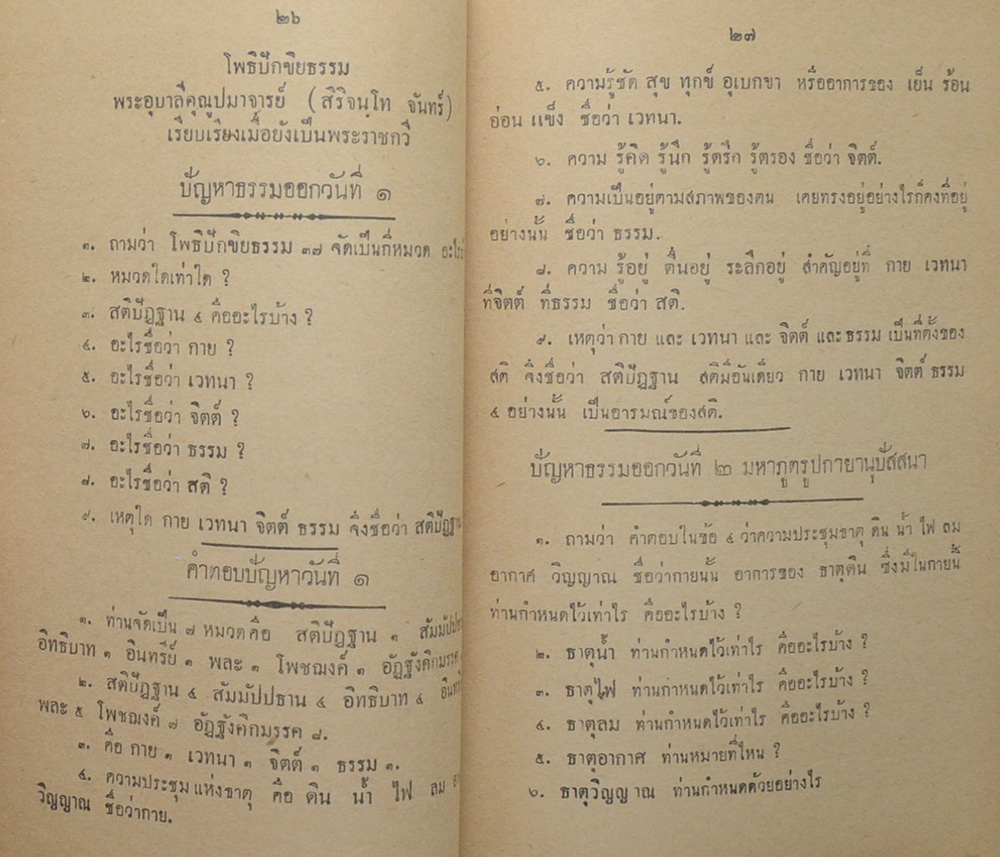 ๒๖
โพธิปักขิยธรรม
พระอุบาลีคุณูปมาจารย์ (สิริจนฺโท จันทร์)
เรียบเรียงเมื่อยังเป็นพระราชกวี
ปัญหาธรรมออกวันที่ ๑
๑. ถามว่า โพธิปักขิยธรรม ๓๗ จัดเป็นกี่หมวด
๒. หมวดใดเท่าใด ?
๓. สติปัฏฐาน ๔ คืออะไรบ้าง ?
๔. อะไรชื่อว่า กาย ?
๕. อะไรชื่อว่า เวทนา ?
๖. อะไรชื่อว่า จิตต์ ?
๗. อะไรชื่อว่า ธรรม ?
๘. อะไรชื่อว่า สติ ?
๙. เหตุใด กาย เวทนา จิตต์ ธรรม จึงชื่อว่า
คำตอบปัญหาวันที่ ๑
๑. ท่านจัดเป็น ๗ หมวดคือ สติปัฏฐาน ๑
อิทธิบาท ๑ อินทรีย์ ๑ พละ ๑ โพชฌงค์ ๑ อัฏฐังคิกมรรค
๒. สติปัฏฐาน ๔ สัมมัปปธาน ๔ อิทธิบาท ๔
พละ ๕ โพชฌงค์ ๗ อัฏฐังคิกมรรค ๘.
๓. คือ กาย ๑ เวทนา ๑ จิตต์ ๑ ธรรม ๑.
๔. ความประชุมแห่งธาตุ คือ ดิน น้ำ ไฟ ลม
วิญญาณ ชื่อว่ากาย.
๒๗
๕. ความรู้ชัด สุข ทุกข์ อุเบกขา หรืออาการของ เย็น ร้อน
อ่อน แข็ง ชื่อว่า เวทนา.
๖. ความ รู้คิด รู้นึก รู้ตรึก รู้ตรอง ชื่อว่า จิตต์.
๗. ความเป็นอยู่ตามสภาพของตน เคยทรงอยู่อย่างไรก็คงที่อยู่
อย่างนั้น ชื่อว่า ธรรม.
๘. ความ รู้อยู่ ตื่นอยู่ ระลึกอยู่ สำคัญอยู่ที่ กาย เวทนา
ที่จิตต์ ที่ธรรม ชื่อว่า สติ.
๙. เหตุว่า กาย และ เวทนา และ จิตต์ และธรรม เป็นที่ตั้งของ
สติ จึงชื่อว่า สติปัฏฐาน สติมีอันเดียว กาย เวทนา จิตต์ ธรรม
๔ อย่างนั้น เป็นอารมณ์ของสติ.
ปัญหาธรรมออกวันที่ ๒ มหาภูตรูปกายานุปัสสนา
๑. ถามว่า คำตอบในข้อ ๔ ว่าความประชุมธาตุ ดิน น้ำ ไฟ ลม
อากาศ วิญญาณ ชื่อว่ากายนั้น อาการของ ธาตุดิน ซึ่งมีในกายนี้
ท่านกำหนดไว้เท่าไร คืออะไรบ้าง ?
๒. ธาตุน้ำ ท่านกำหนดไว้เท่าไร คืออะไรบ้าง ?
๓. ธาตุไฟ ท่านกำหนดไว้เท่าไร คืออะไรบ้าง ?
๔. ธาตุลม ท่านกำหนดไว้เท่าไร คืออะไรบ้าง ?
๕. ธาตุอากาศ ท่านหมายที่ไหน ?
๖. ธาตุวิญญาณ ท่านกำหนดด้วยอย่างไร